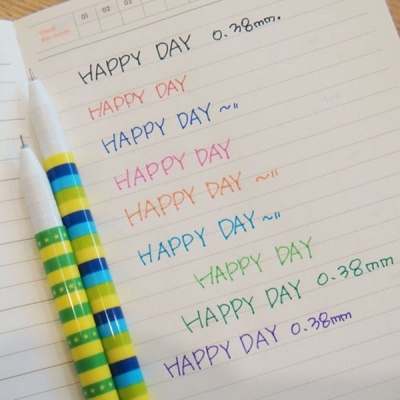 01 02 03
HAPPY DAY 0.38mm.
HAPPY DAY
HAPPY DAY ~"
HAPPY DAY
HAPPY DAY ~"
HAPPY DAY ~"
HAPPY DAY
HAPPY DAY 0.38mm
HAPPY DAY 0.38mm